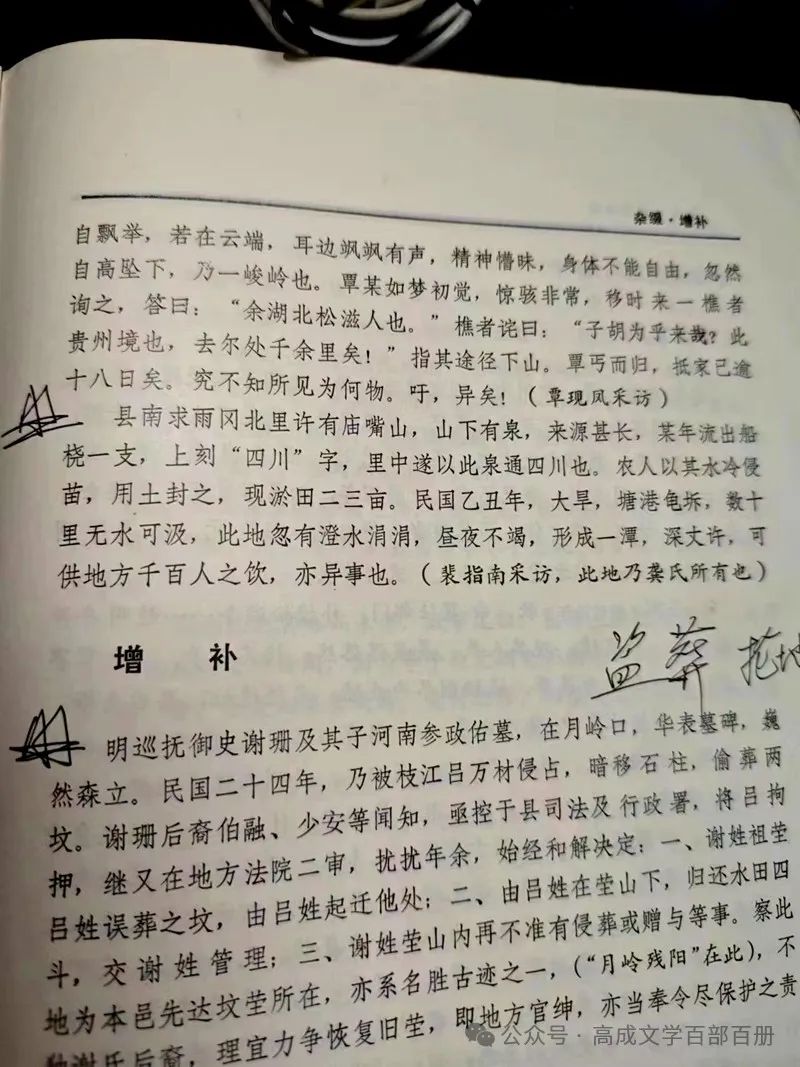 杂缀·增补
自飘举，若在云端，耳边飒飒有声，精神懵昧，身体不能自由，忽然
自高坠下，乃一峻岭也。覃某如梦初觉，惊骇非常，移时来一樵者
询之，答曰：“余湖北松滋人也。”樵者诧曰：“子胡为乎来哉？此
贵州境也，去尔处千余里矣！”指其途径下山。覃丐而归，抵家已逾
十八日矣。究不知所见为何物。吁，异矣！（覃现凤采访）
县南求雨冈北里许有庙嘴山，山下有泉，来源甚长，某年流出船
桡一支，上刻“四川”字，里中遂以此泉通四川也。农人以其水冷侵
苗，用土封之，现淤田二三亩。民国乙丑年，大旱，塘港龟坼，数十
里无水可汲，此地忽有澄水涓涓，昼夜不竭，形成一潭，深丈许，可
供地方千百人之饮，亦异事也。（裴指南采访，此地乃龚氏所有也）
增 补
盗葬
明巡抚御史谢珊及其子河南参政佑墓，在月岭口，华表墓碑，巍
然森立。民国二十四年，乃被枝江吕万材侵占，暗移石柱，偷葬两
坟。谢珊后裔伯融、少安等闻知，亟控于县司法及行政署，将吕拘
押，继又在地方法院二审，扰扰年余，始经和解决定；一、谢姓祖茔
吕姓误葬之坟，由吕姓起迁他处；二、由吕姓在茔山下，归还水田四
斗，交谢姓管理；三、谢姓茔山内再不准有侵葬或赠与等事。察此
地为本邑先达坟茔所在，亦系名胜古迹之一，（“月岭残阳”在此），不
谢氏后裔，理宜力争恢复旧茔，即地方官绅，亦当奉令尽保护之责
公众号·高成文学百部百册